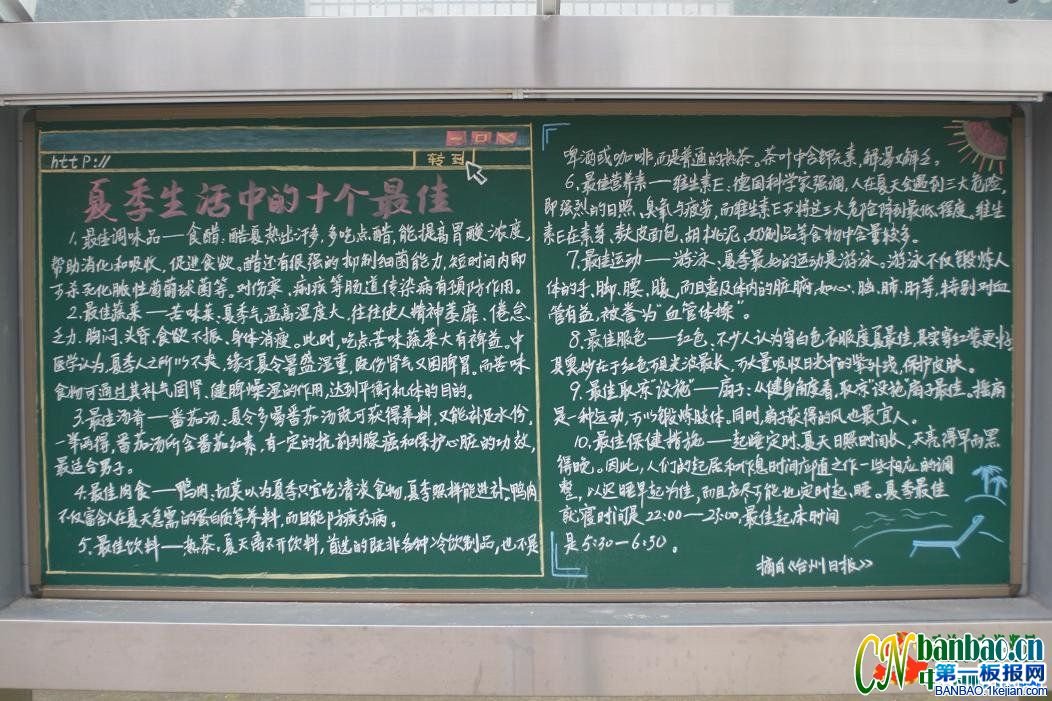 http://
转到
夏季生活中的十个最佳
1、最佳调味品——食醋、酷夏热出汗多,多吃点醋,能提高胃酸浓度,
帮助消化和吸收,促进食欲。醋还有很强的抑制细菌能力,短时间内即
可杀死化脓性葡萄球菌等。对伤寒、痢疾等肠道传染病有预防作用。
2、最佳蔬菜——苦味菜、夏季气温高湿度大,往往使人精神萎靡、倦怠
乏力、胸闷、头昏、食欲不振、身体消瘦。此时,吃点苦味蔬菜大有裨益。中
医学认为,夏季人之所以不爽,缘于夏令暑盛湿重,既伤肾气又困脾胃。而苦味
食物可通过其补气固肾、健脾燥湿的作用,达到平衡机体的目的。
3、最佳汤肴——番茄汤、夏令多喝番茄汤既可获得养料,又能补足水份,
一举两得,番茄汤所含番茄红素,有一定的抗前列腺癌和保护心脏的功效,
最适合男子。
4、最佳肉食——鸭肉、切莫以为夏季只宜吃清淡食物,夏季照样能进补,鸭肉
不仅富含人在夏天急需的蛋白质等养料,而且能防疾疗病。
5、最佳饮料——热茶、夏天离不开饮料,首选的既非各种冷饮制品,也不是
啤酒或咖啡,而是普通的热茶。茶叶中含钾元素,解渴又解乏。
6、最佳营养素——维生素E、德国科学家强调,人在夏天会遇到三大危险,
即强烈的日照、臭氧与疲劳,而维生素E可将这三大危险降到最低程度。维生
素E在麦芽、麸皮面包、胡桃泥、奶制品等食物中含量较多。
7、最佳运动——游泳、夏季最好的运动是游泳。游泳不仅锻炼人
体的手、脚、腰、腹,而且惠及体内的脏腑,如心、脑、肺、肝等,特别对血
管有益,被誉为“血管体操”。
8、最佳服色——红色、不少人认为穿白色衣服度夏最佳,其实穿红装更好
其奥妙在于红色可见光波最长,可大量吸收日光中的紫外线,保护皮肤。
9、最佳取凉“设施”——扇子、从健身角度看,取凉“设施”扇子最佳。摇扇
是一种运动,可以锻炼肢体。同时,扇子获得的风也最宜人。
10、最佳保健措施——起睡定时,夏天日照时间长,天亮得早而黑
得晚。因此,人们的起居和作息时间应随之作一些相应的调
整,以迟睡早起为佳,而且应尽可能也定时起、睡。夏季最佳
就寝时间是22:00—23:00,最佳起床时间
是5:30—6:30。
摘自《台州日报》
CN banbao.cn
第一板报网
BANBAO.1kejian.com